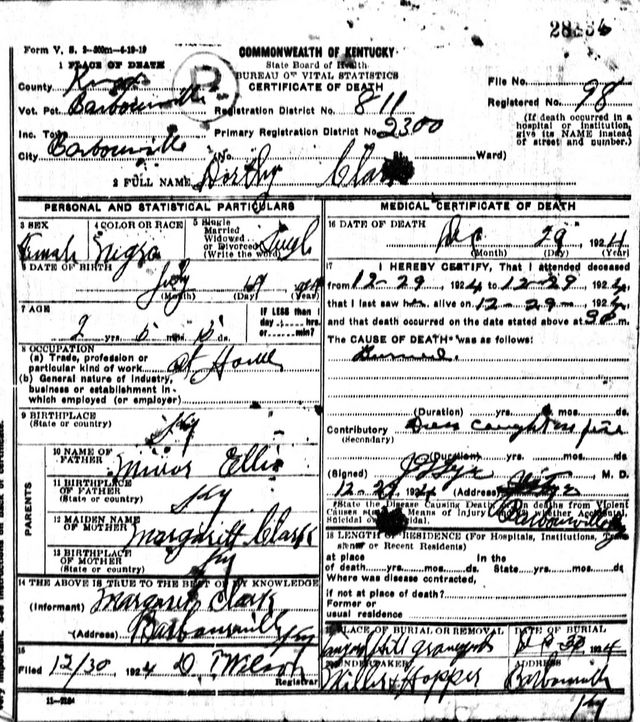 Form V. S.
COMMONWEALTH OF KENTUCKY
State Board of Health
BUREAU OF VITAL STATISTICS
CERTIFICATE OF DEATH
1 PLACE OF DEATH
County Knox
Vot. Pct. Barbourville
Registration District No. 811
File No.
Registered No. 98
Inc. Town
Primary Registration District No. 2300
(If death occurred in a hospital or institution, give its NAME instead of street and number.)
City Barbourville
(No. Ward)
2 FULL NAME Dorthy Clark
PERSONAL AND STATISTICAL PARTICULARS
3 SEX Female
4 COLOR OR RACE Negro
5 Single Married Widowed or Divorced (Write the word) Single
6 DATE OF BIRTH July
(Month) (Day) (Year)
7 AGE 2 yrs. 5 mos. ds.
IF LESS than 1 day hrs. or min?
8 OCCUPATION
(a) Trade, profession or particular kind of work at Home
(b) General nature of industry, business or establishment in which employed (or employer)
9 BIRTHPLACE
(State or country) Ky
PARENTS
10 NAME OF FATHER Minor Ellis
11 BIRTHPLACE OF FATHER
(State or country) Ky
12 MAIDEN NAME OF MOTHER Margarett Clark
13 BIRTHPLACE OF MOTHER
(State or country) Ky
14 THE ABOVE IS TRUE TO THE BEST OF MY KNOWLEDGE
(Informant) Margaret Clark
(Address) Barbourville Ky
15
Filed 12/30 1924 D. T. Wilson
Registrar
MEDICAL CERTIFICATE OF DEATH
16 DATE OF DEATH Dec 29 1924
(Month) (Day) (Year)
17 I HEREBY CERTIFY, That I attended deceased
from 12-29 1924 to 12-29 1924
that I last saw her alive on 12-29 1924
and that death occurred on the date stated above at
The CAUSE OF DEATH was as follows:
Burned
(Duration) yrs. mos. ds.
Contributory Dress caught on fire
(Secondary)
(Duration) yrs. mos. ds.
(Signed) M. D.
12-29 1924 (Address) Barbourville
State the Disease Causing Death or in deaths from Violent Causes state Means of Injury and whether Accidental, Suicidal or Homicidal.
18 LENGTH OF RESIDENCE (For Hospitals, Institutions, Transients or Recent Residents)
at place of death yrs. mos. ds. In the State yrs. mos. ds.
Where was disease contracted,
if not at place of death?
Former or usual residence
19 PLACE OF BURIAL OR REMOVAL
Hill Graveyard
DATE OF BURIAL
1924
20 UNDERTAKER
Miller & Hopper
ADDRESS
Barbourville Ky